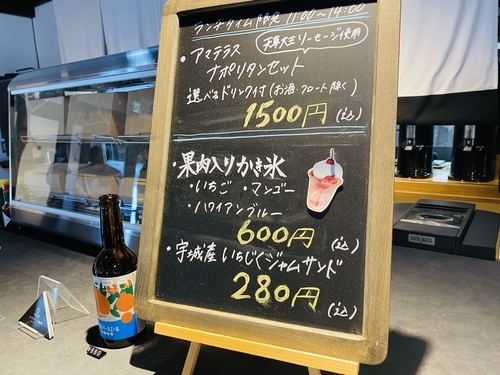 ランチタイム限定 11:00〜14:00
・アマテラス
天草大王ソーセージ使用
ナポリタンセット
選べるドリンク付(お酒・フロート除く)
1500円(込)
・果肉入りかき氷
・いちご ・マンゴー
・ハワイアンブルー
600円(込)
・宇城産いちじくジャムサンド
280円(込)